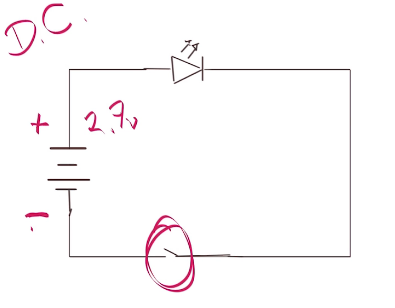 D.C.
+ 2.7v
-